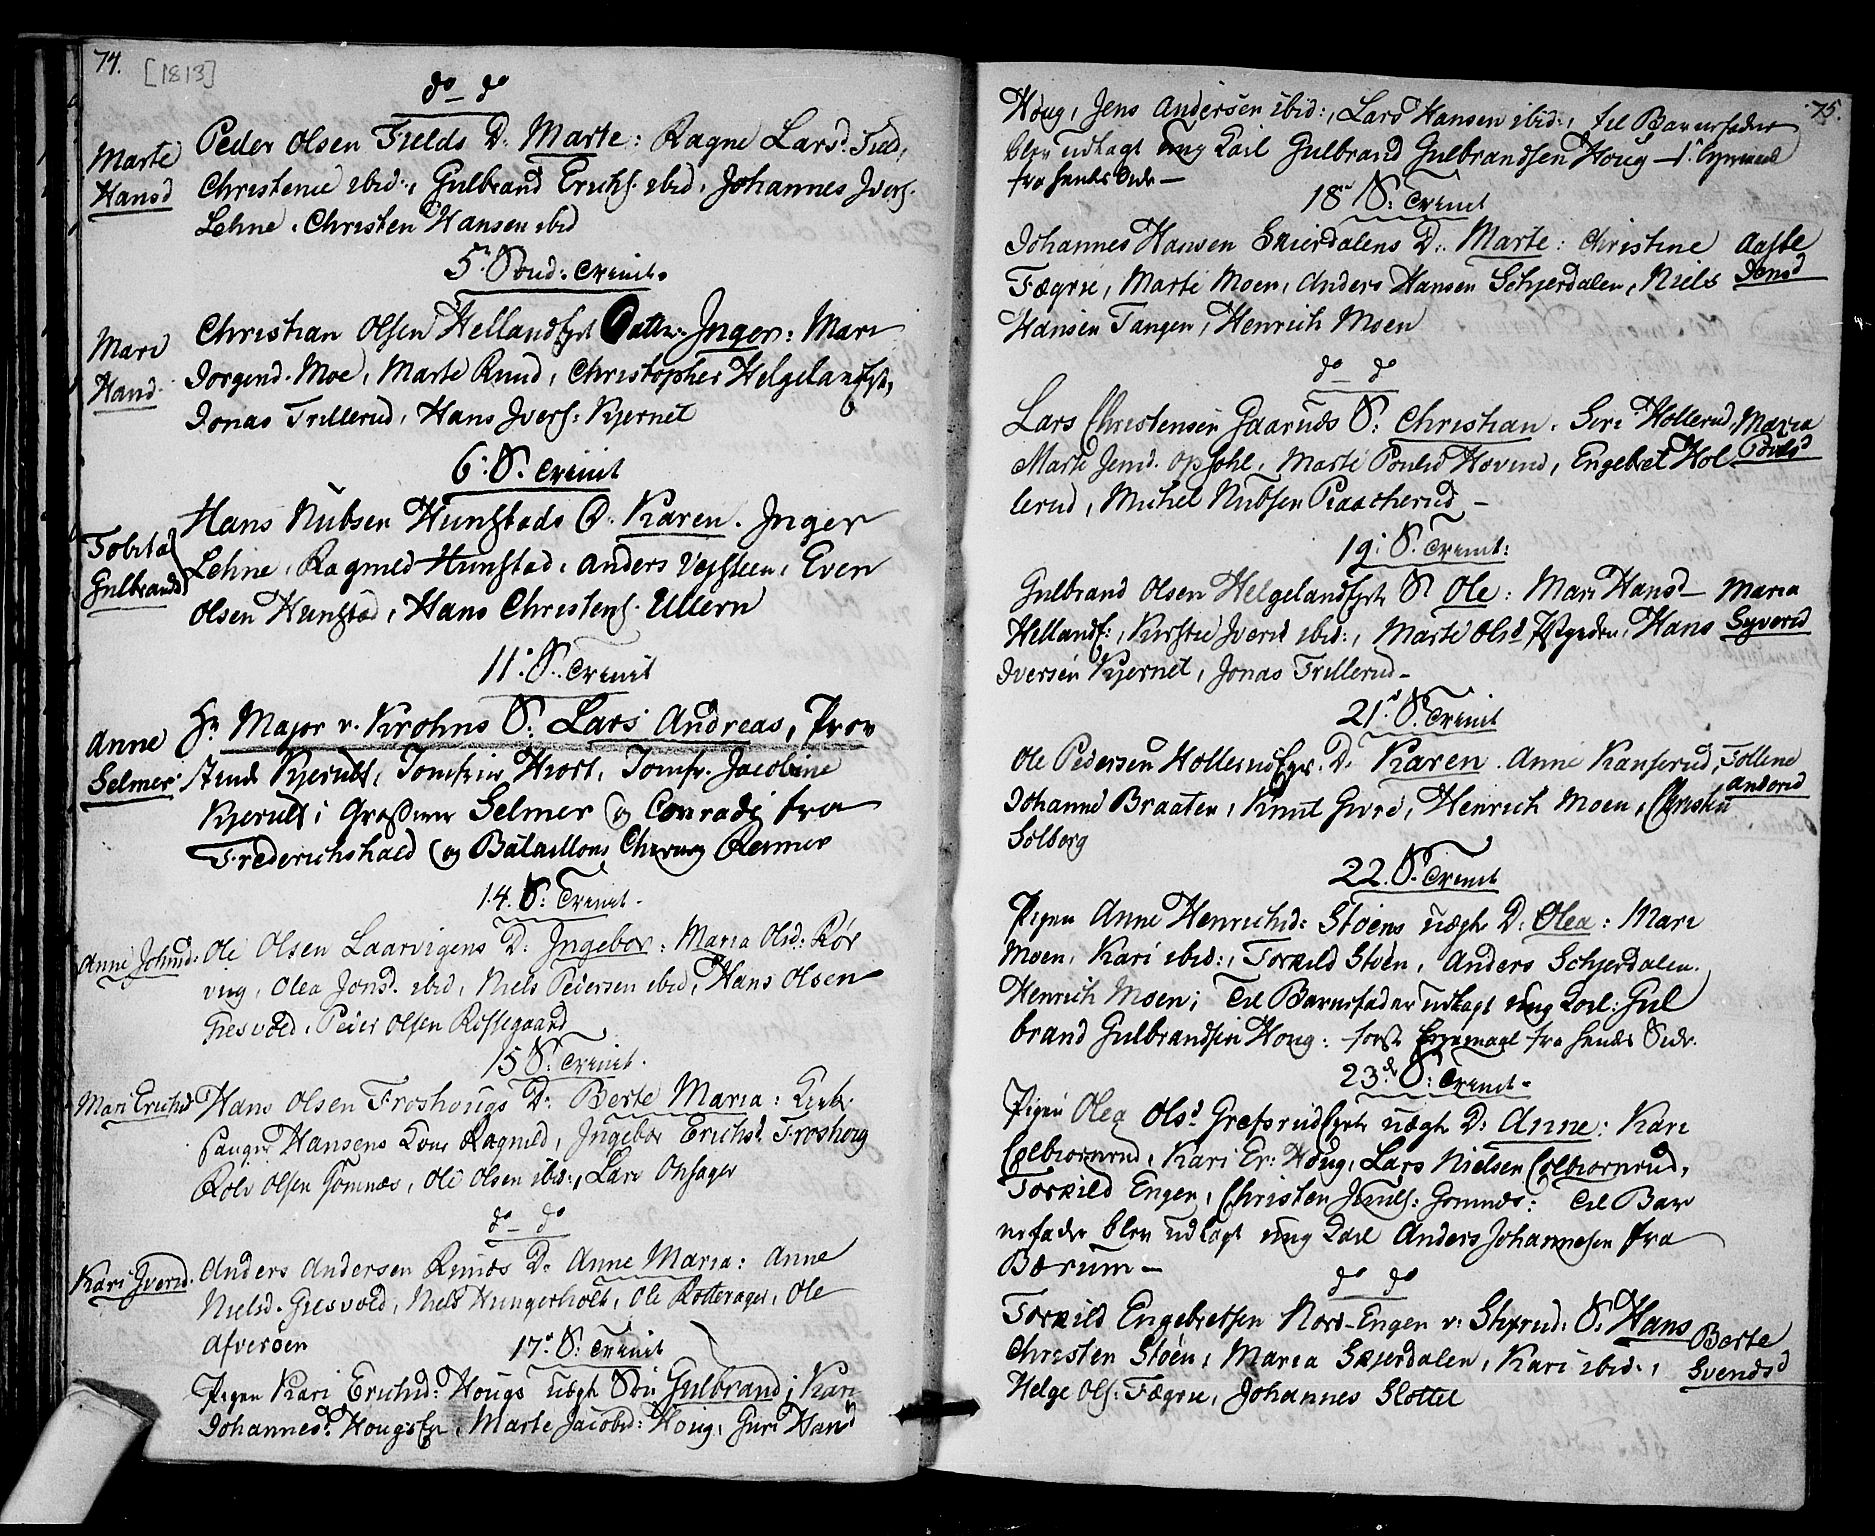 74. [1813]
do – do
Marte Hansd
Peder Olsen Fields D. Marte: Ragne Larsd. Field,
Christenie ibid:, Gulbrand Erichs. ibid, Johannes Ivers.
Lehne, Christen Hansen ibid
5. Sønd. Trinit.
Mari Hansd.
Christian Olsen Hellandseyet Datter Inger: Mari
Jorgensd. Moe, Marte Ruud, Christopher Helgelandsey,
Jonas Trillerud, Hans Ivers: Kjernet
6. S. Trinit
Tobita Gulbrandsd
Hans Nubsen Hunstads D. Karen. Inger
Lehne, Ragnild Hunstad, Anders Vejsteen, Even
Olsen Hunstad, Hans Christens. Ullern
11. S. Trinit
Anne Selmer
Hr. Major v. Krohns S. Lars Andreas, Prov
stinde Kjerulf, Jomfrue Hiort, Jomfr. Jacobine
Kjerulf; Selmer og Conradi fra
Frederichshald og Batallions Chirurg Reimer
14. S. Trinit.
Anne Johnsd.
Ole Olsen Laarvigens D. Ingebor: Maria Olsd. Rør
viig, Olea Jonsd. ibid, Niels Pedersen ibid, Hans Olsen
Giesvold, Peder Olsen Rossegaard
15 S. Trinit.
Mari Erichsd
Hans Olsen Froshougs D. Berte Maria:
Hansens Kone Ragnild, Ingebor Erichsd. Froshoug
Rolv Olsen Gomnæs, Ole Olsen ibid:, Lars Onsager
do – do
Kari Iversd.
Anders Andersen Rimæs D. Anne Maria: Anne
Nielsd. Giesvold, Niels Hungerholt, Ole Rotterager, Ole
Afverøen
17. S. Trinit
Pigen Kari Erichsd. Hougs uægte Søn Gulbrand; Kari
Johannesd. Hougs Ey. Marte Jacobsd: Houg, Guri Hansd
75.
Houg, Jens Andersen ibid:, Lars Hansen ibid:, til Barnefader
blev udlagt ung Karl Gulbrand Gulbrandsen Houg –
fra hendes Side –
18 S. Trinit
Johannes Hansen Skierdalens D. Marte: Christine
Aaste Jensd
Fægrie, Marte Moen, Anders Hansen Schjerdalen, Niels
Hansen Tangen, Henrich Moen
do – do
Lars Christensen Gaaruds S. Christian. Siri Hollerud,
Maria Poulsd
Marte Jensd. Opsahl, Marte Poulsd Hovind, Engebret Hol
lerud, Michel Nubsen Raacherud –
19. S. Trinit:
Gulbrand Olsen Helgelandseyets S. Ole: Mari Hansd
Maria Syversd
Hellands:, Kirstie Iversd ibid:, Marte Olsd Hans
Iversen Kjernet, Jonas Trillerud –
21. S. Trinit
Ole Pedersen Hollerudeyets. D. Karen. Anne Kanserud,
Tolline Andersd
Johanne Braaten, Knut Gure, Henrich Moen, Christen
Solborg
22. S. Trinit
Pigen Anne Henrichsd: Støens uægte D: Olea: Mari
Moen, Kari ibid:, Torkild Støen, Anders Schjerdalen.
Henrich Moen; Til Barnefader udlagt ung Karl: Gul
brand Gulbrandsen Houg: første Leyermaal fra hendes Side.
23. S. Trinit.
Pigen Olea Olsd Grefsrudseyets uægte D. Anne: Kari
Colbiornrud, Kari Er: Houg, Lars Nielsen Colbiornrud,
Torkild Engen, Christen Gomnæs: Til Bar
nefader blev udlagt ung Karl Anders Johannesen fra
Bærum –
do do
Torkild Engebretsen Nord-Engen v. Stixrud. S. Hans
Berte Svendsd
Christen Støen, Maria Skjerdalen, Kari ibid:,
Helge Ols: Fægrie, Johannes Slottet